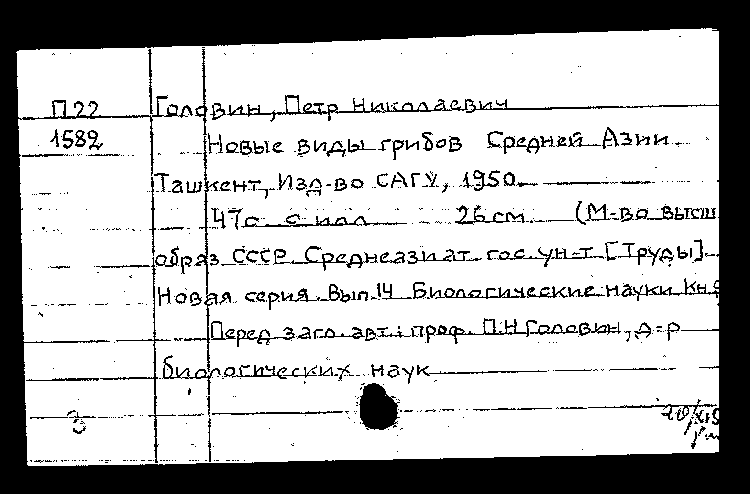 П22 Головин, Петр Николаевич
1582 Новые виды грибов Средней Азии.
Ташкент, Изд-во САГУ, 1950.
47с. с илл 26 см (М-во высш
образ. СССР. Среднеазиат. гос. ун-т [Труды].
Новая серия. Вып. 14 Биологические науки Кн
Перед загл. авт.: проф. П.Н Головин, д-р
биологических наук
3